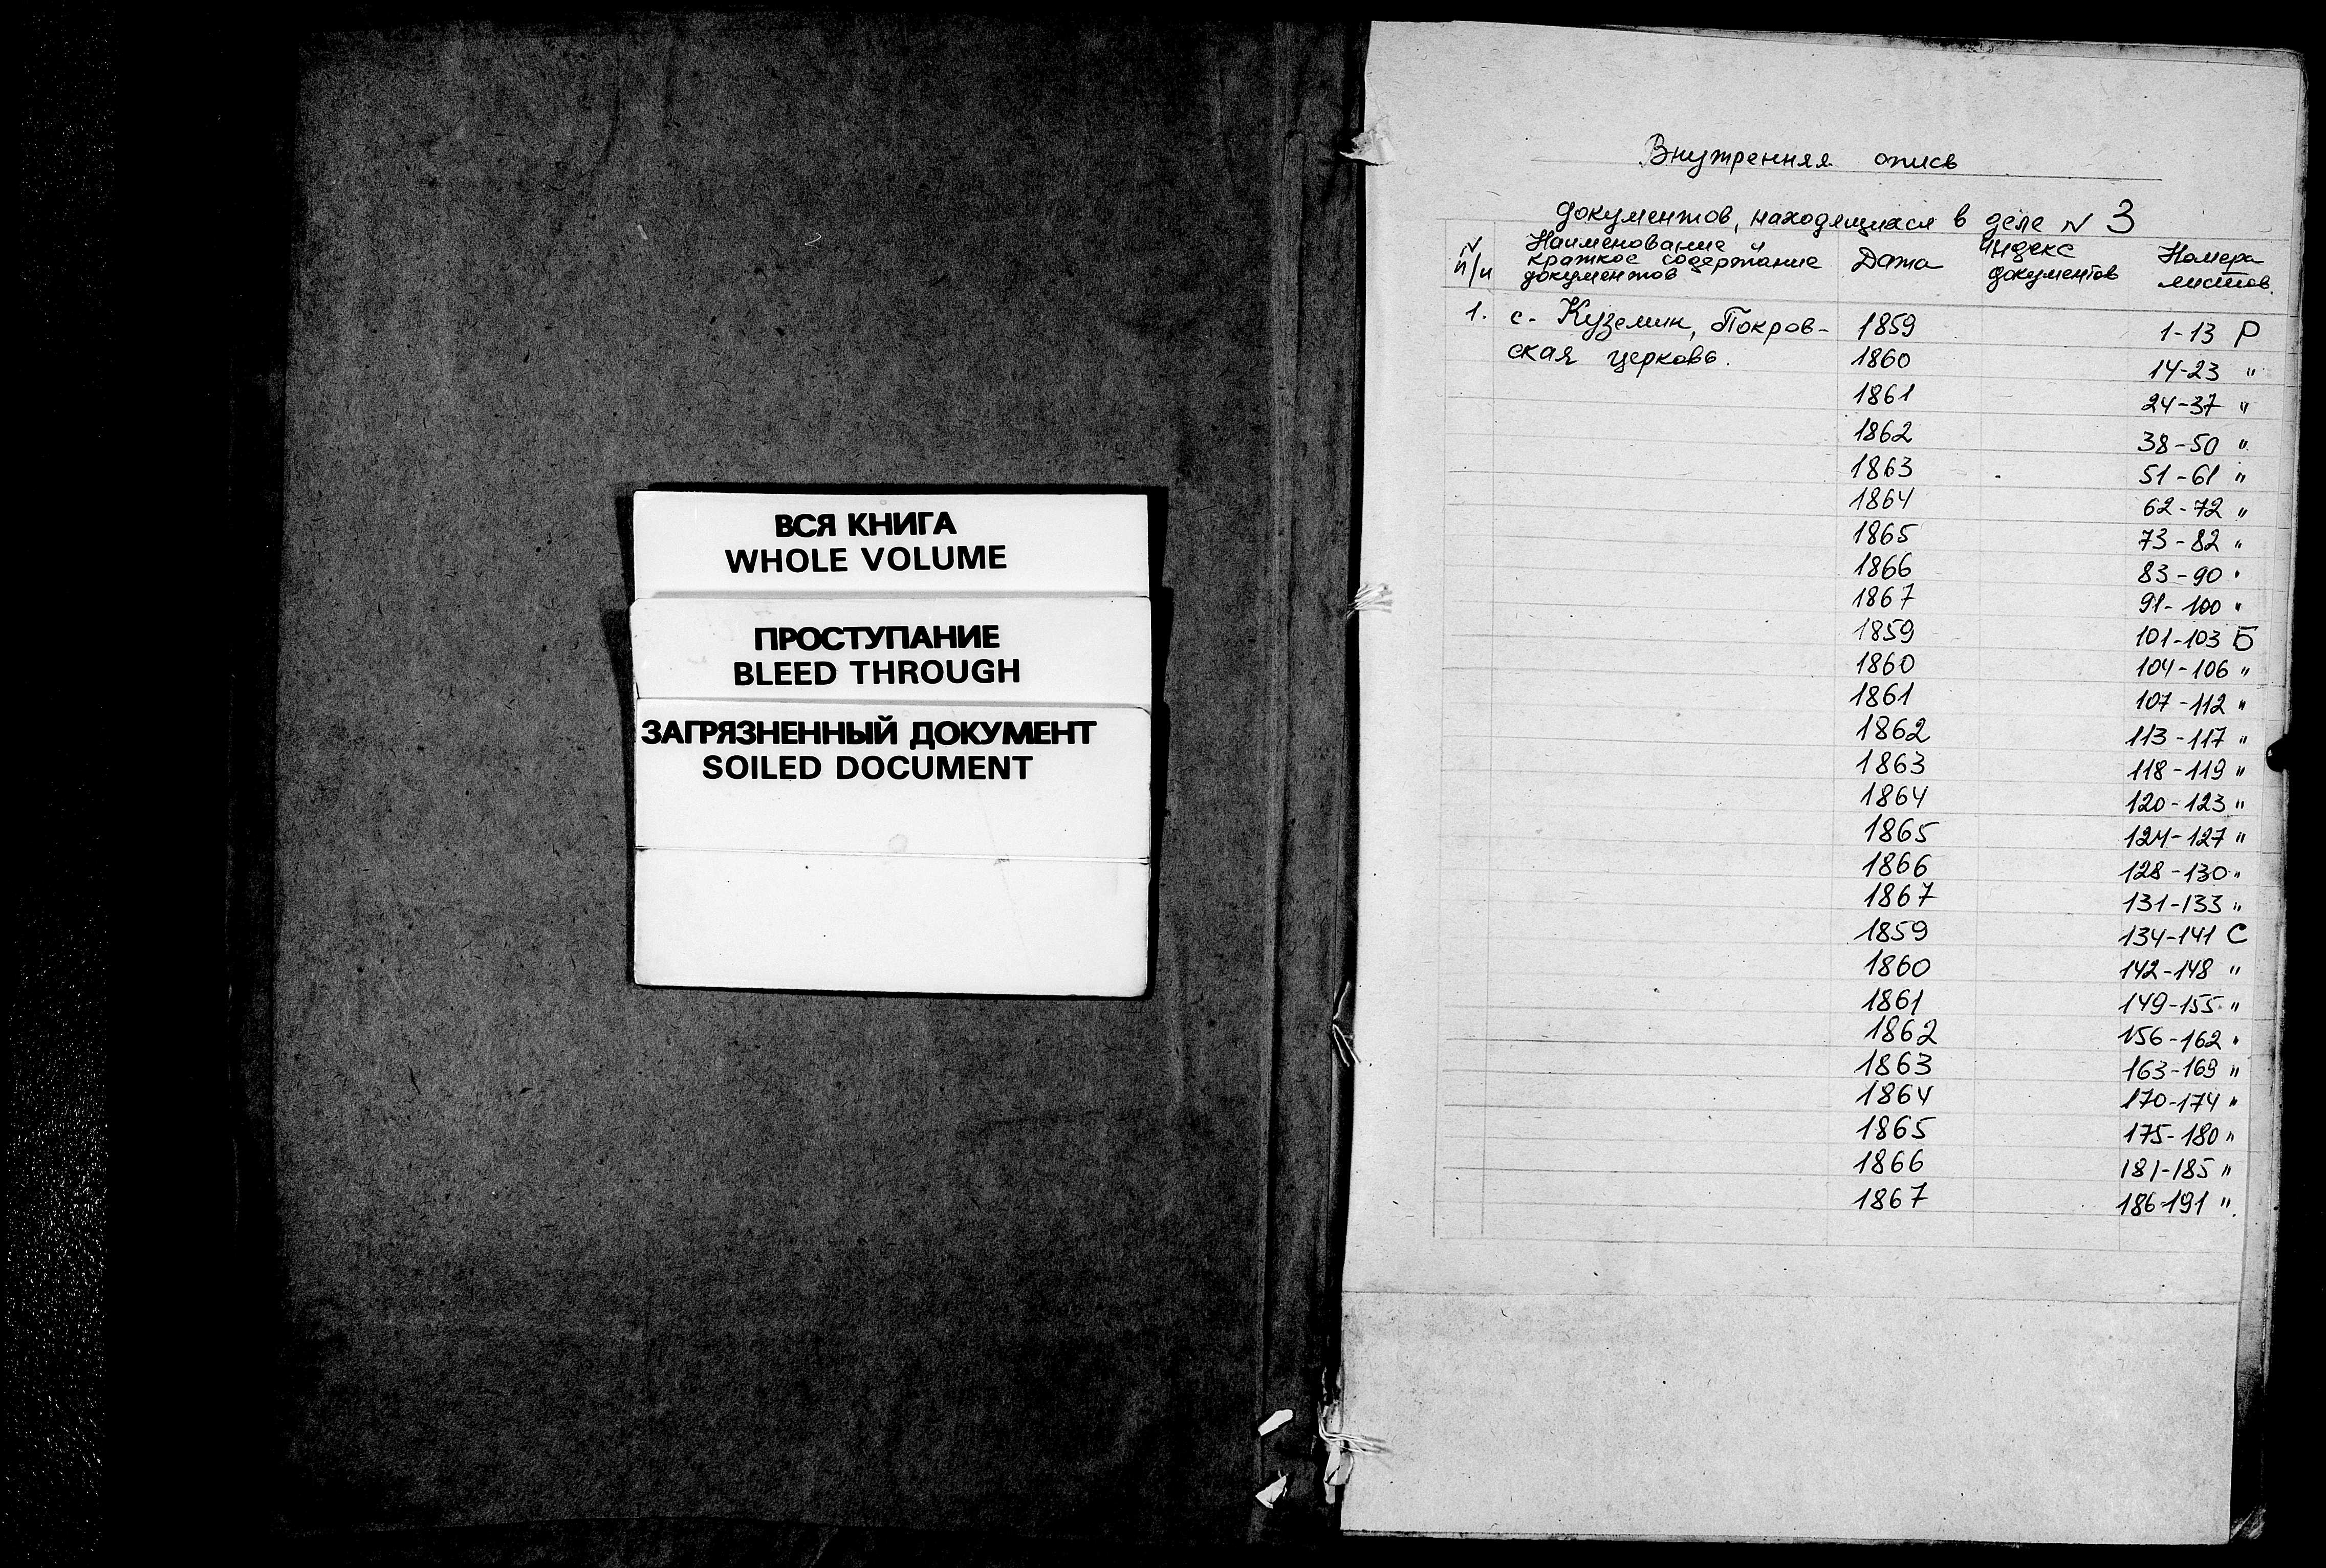 ВСЯ КНИГА
WHOLE VOLUME
ПРОСТУПАНИЕ
BLEED THROUGH
ЗАГРЯЗНЕННЫЙ ДОКУМЕНТ
SOILED DOCUMENT
Внутренняя опись
документов, находящихся в деле N 3
N п/п Наименование и краткое содержание документов Дата Индекс документов Номера листов
1. с. Куземин, Покров- 1859 1-13 Р
ская церковь. 1860 14-23 "
1861 24-37 "
1862 38-50 "
1863 51-61 "
1864 62-72 "
1865 73-82 "
1866 83-90 "
1867 91-100 "
1859 101-103 Б
1860 104-106 "
1861 107-112 "
1862 113-117 "
1863 118-119 "
1864 120-123 "
1865 124-127 "
1866 128-130 "
1867 131-133 "
1859 134-141 С
1860 142-148 "
1861 149-155 "
1862 156-162 "
1863 163-169 "
1864 170-174 "
1865 175-180 "
1866 181-185 "
1867 186-191 ".